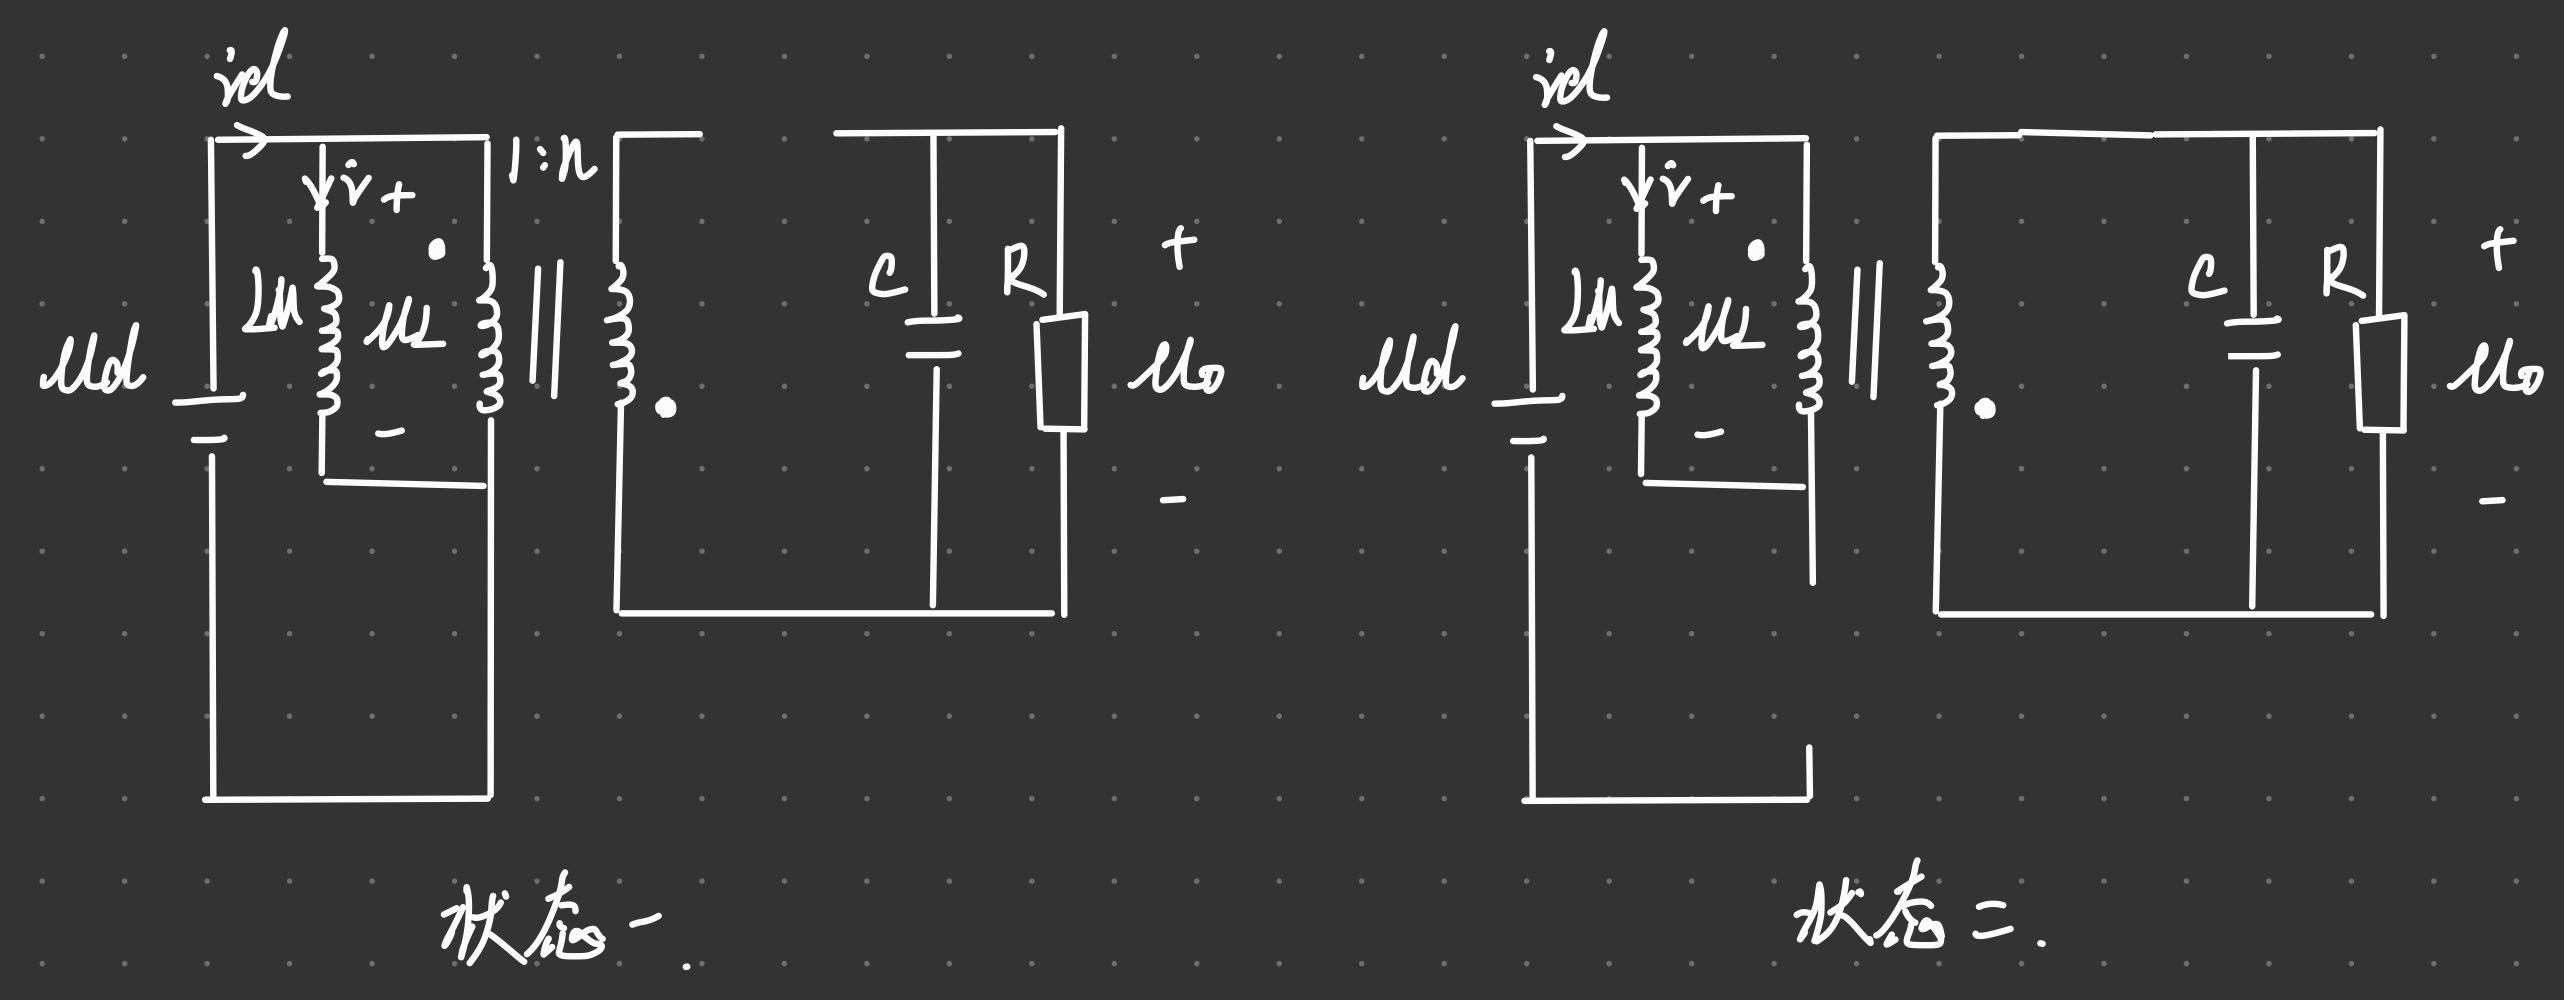 id
1:n
i
+
LM
uL
-
Ud
C
R
+
Uo
-
状态一.
id
i
+
LM
uL
-
Ud
C
R
+
Uo
-
状态二.